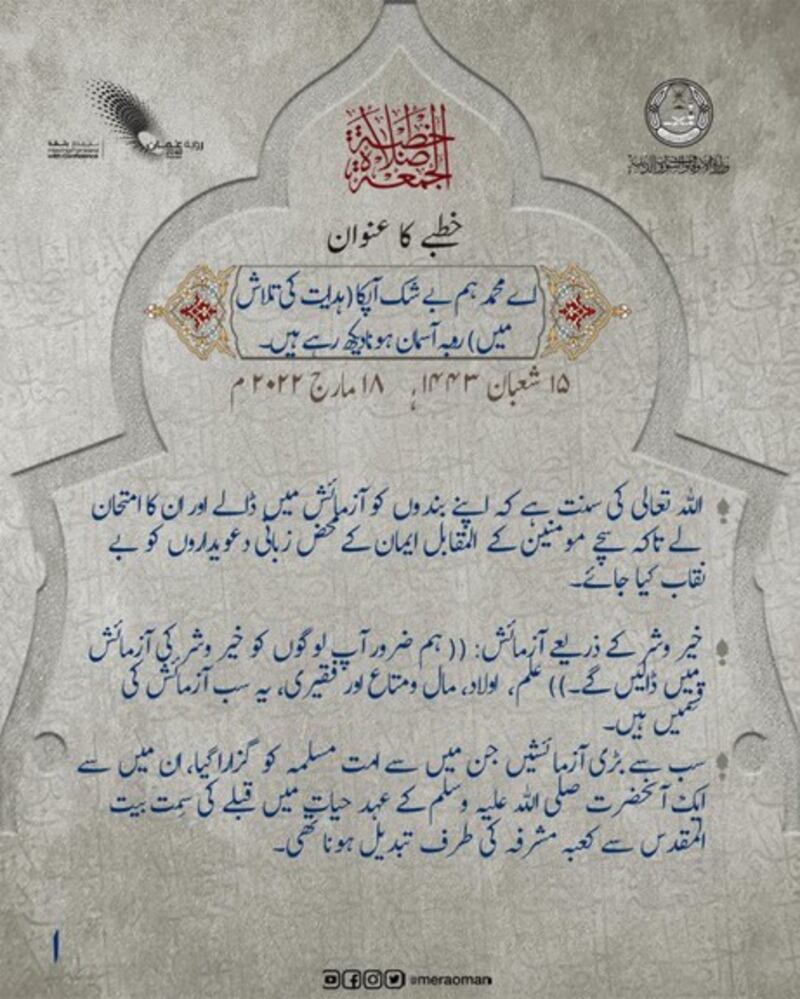 خطبة
صلاة
الجمعة
خطبے کا عنوان
اے محمد ہم بے شک آپکا (ہدایت کی تلاش
میں) روبہ آسمان ہونا دیکھ رہے ہیں۔
۱۵ شعبان ۱۴۴۳ہ، ۱۸ مارچ ۲۰۲۲ م
اللہ تعالی کی سنت ہے کہ اپنے بندوں کو آزمائش میں ڈالے اور ان کا امتحان
لے تاکہ سچے مومنین کے المقابل ایمان کے محض زبانی دعویداروں کو بے
نقاب کیا جائے۔
خیر وشر کے ذریعے آزمائش: (( ہم ضرور آپ لوگوں کو خیر وشر کی آزمائش
میں ڈالیں گے۔)) علم، اولاد، مال ومتاع اور فقیری، یہ سب آزمائش کی
قسمیں ہیں۔
سب سے بڑی آزمائشیں جن میں سے امت مسلمہ کو گزارا گیا، ان میں سے
ایک آنحضرت صلی اللہ علیہ وسلم کے عہد حیات میں قبلے کی سمت بیت
المقدس سے کعبہ مشرفہ کی طرف تبدیل ہونا تھی۔
۱
@meraoman